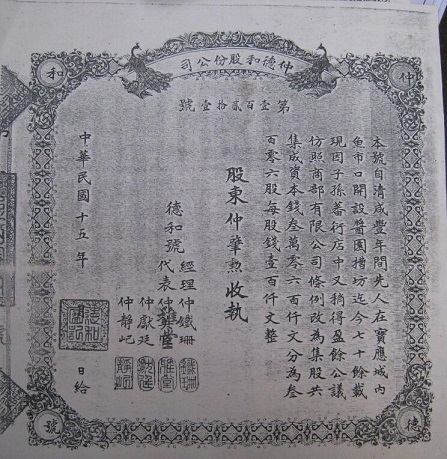 仲德和股份公司
仲
和
第壹百貳拾壹號
本號自清咸豐年間先人在寶應城內
魚市口開設醬園槽坊迄今七十餘載
現因子孫蕃衍店中又稍得盈餘公議
仿照商部有限公司條例改為集股共
集成資本錢叁萬零六百仟文分為叁
百零六股每股錢壹百仟文整
股東仲華勲收執
德和號
經理仲鐵珊
代表仲堂
仲獻廷
仲靜屺
中華民國十五年 日給
德
號